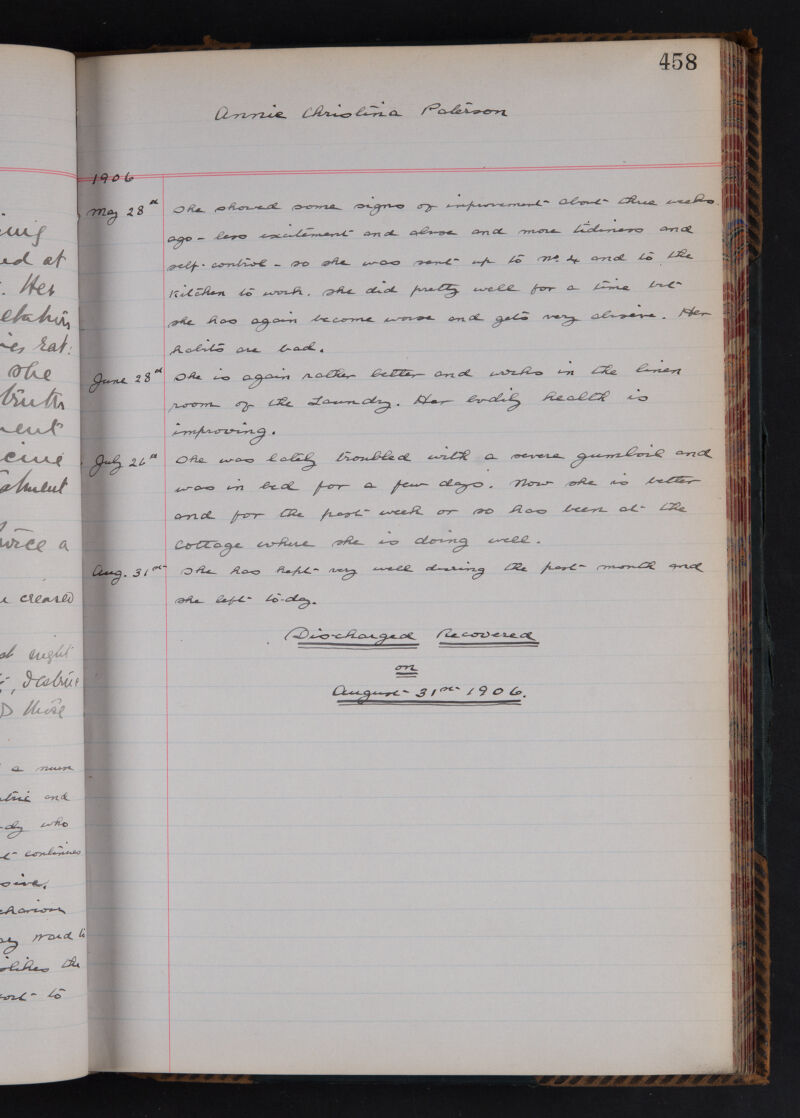 458
Annie Christina Paterson
1906
May 28th She showed some signs of improvement about three weeks
ago - less excitement and abuse and more tidiness and
self-control - so she was sent up to No. 4 and to the
Kitchen to work. She did pretty well for a time but
she has again become worse and gets very abusive. Her
habits are bad.
June 28th She is again rather better and works in the linen
room of the Laundry. Her bodily health is
improving.
July 26th She was lately troubled with a severe gumboil and
was in bed for a few days. Now she is better
and for the past week or so has been at the
Cottage where she is doing well.
Aug. 31st She has kept very well during the past month and
she left to-day.
Discharged Recovered
on
August 31st 1906.
ed at
. Her
she
ment
twice a
cleared
at night
a nurse
and
who
continues
ward to
the
to